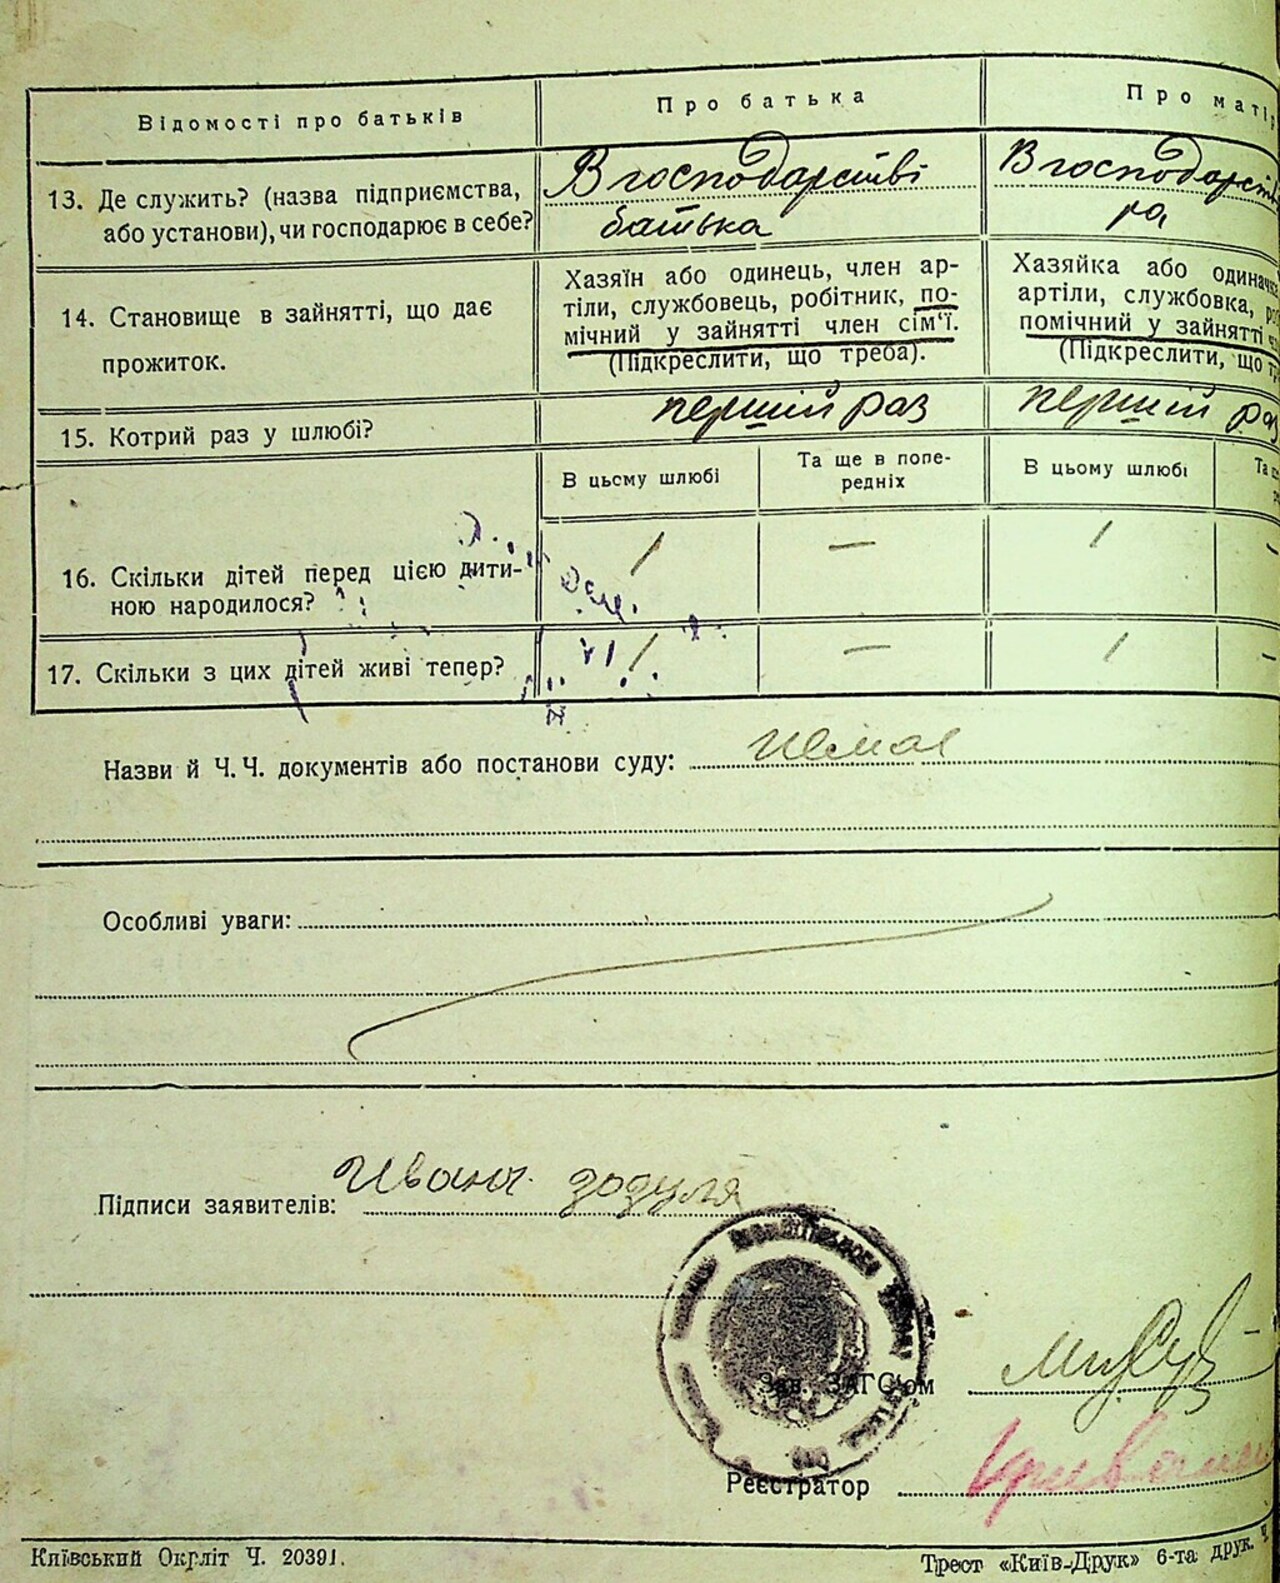 Відомості про батьків
Про батька
Про матір
13. Де служить? (назва підприємства,
або установи), чи господарює в себе?
В господарстві
батька
В господарст
14. Становище в зайнятті, що дає
прожиток.
Хазяїн або одинець, член ар-
тіли, службовець, робітник, по-
мічний у зайнятті член сім'ї.
(Підкреслити, що треба).
Хазяйка або одиначка
артіли, службовка,
помічний у зайнятті
(Підкреслити, що
15. Котрий раз у шлюбі?
перший раз
перший раз
В цьсму шлюбі
Та ще в попе-
редніх
В цьому шлюбі
Та
16. Скільки дітей перед цією дити-
ною народилося?
1
—
1
—
17. Скільки з цих дітей живі тепер?
1
—
1
—
Назви й Ч. Ч. документів або постанови суду: немає
Особливі уваги:
Підписи заявителів: Иванъ зозуля
Зав. ЗАГС'ом
Реєстратор
Київський Окрліт Ч. 20391.
Трест «Київ-Друк» 6-та друк.